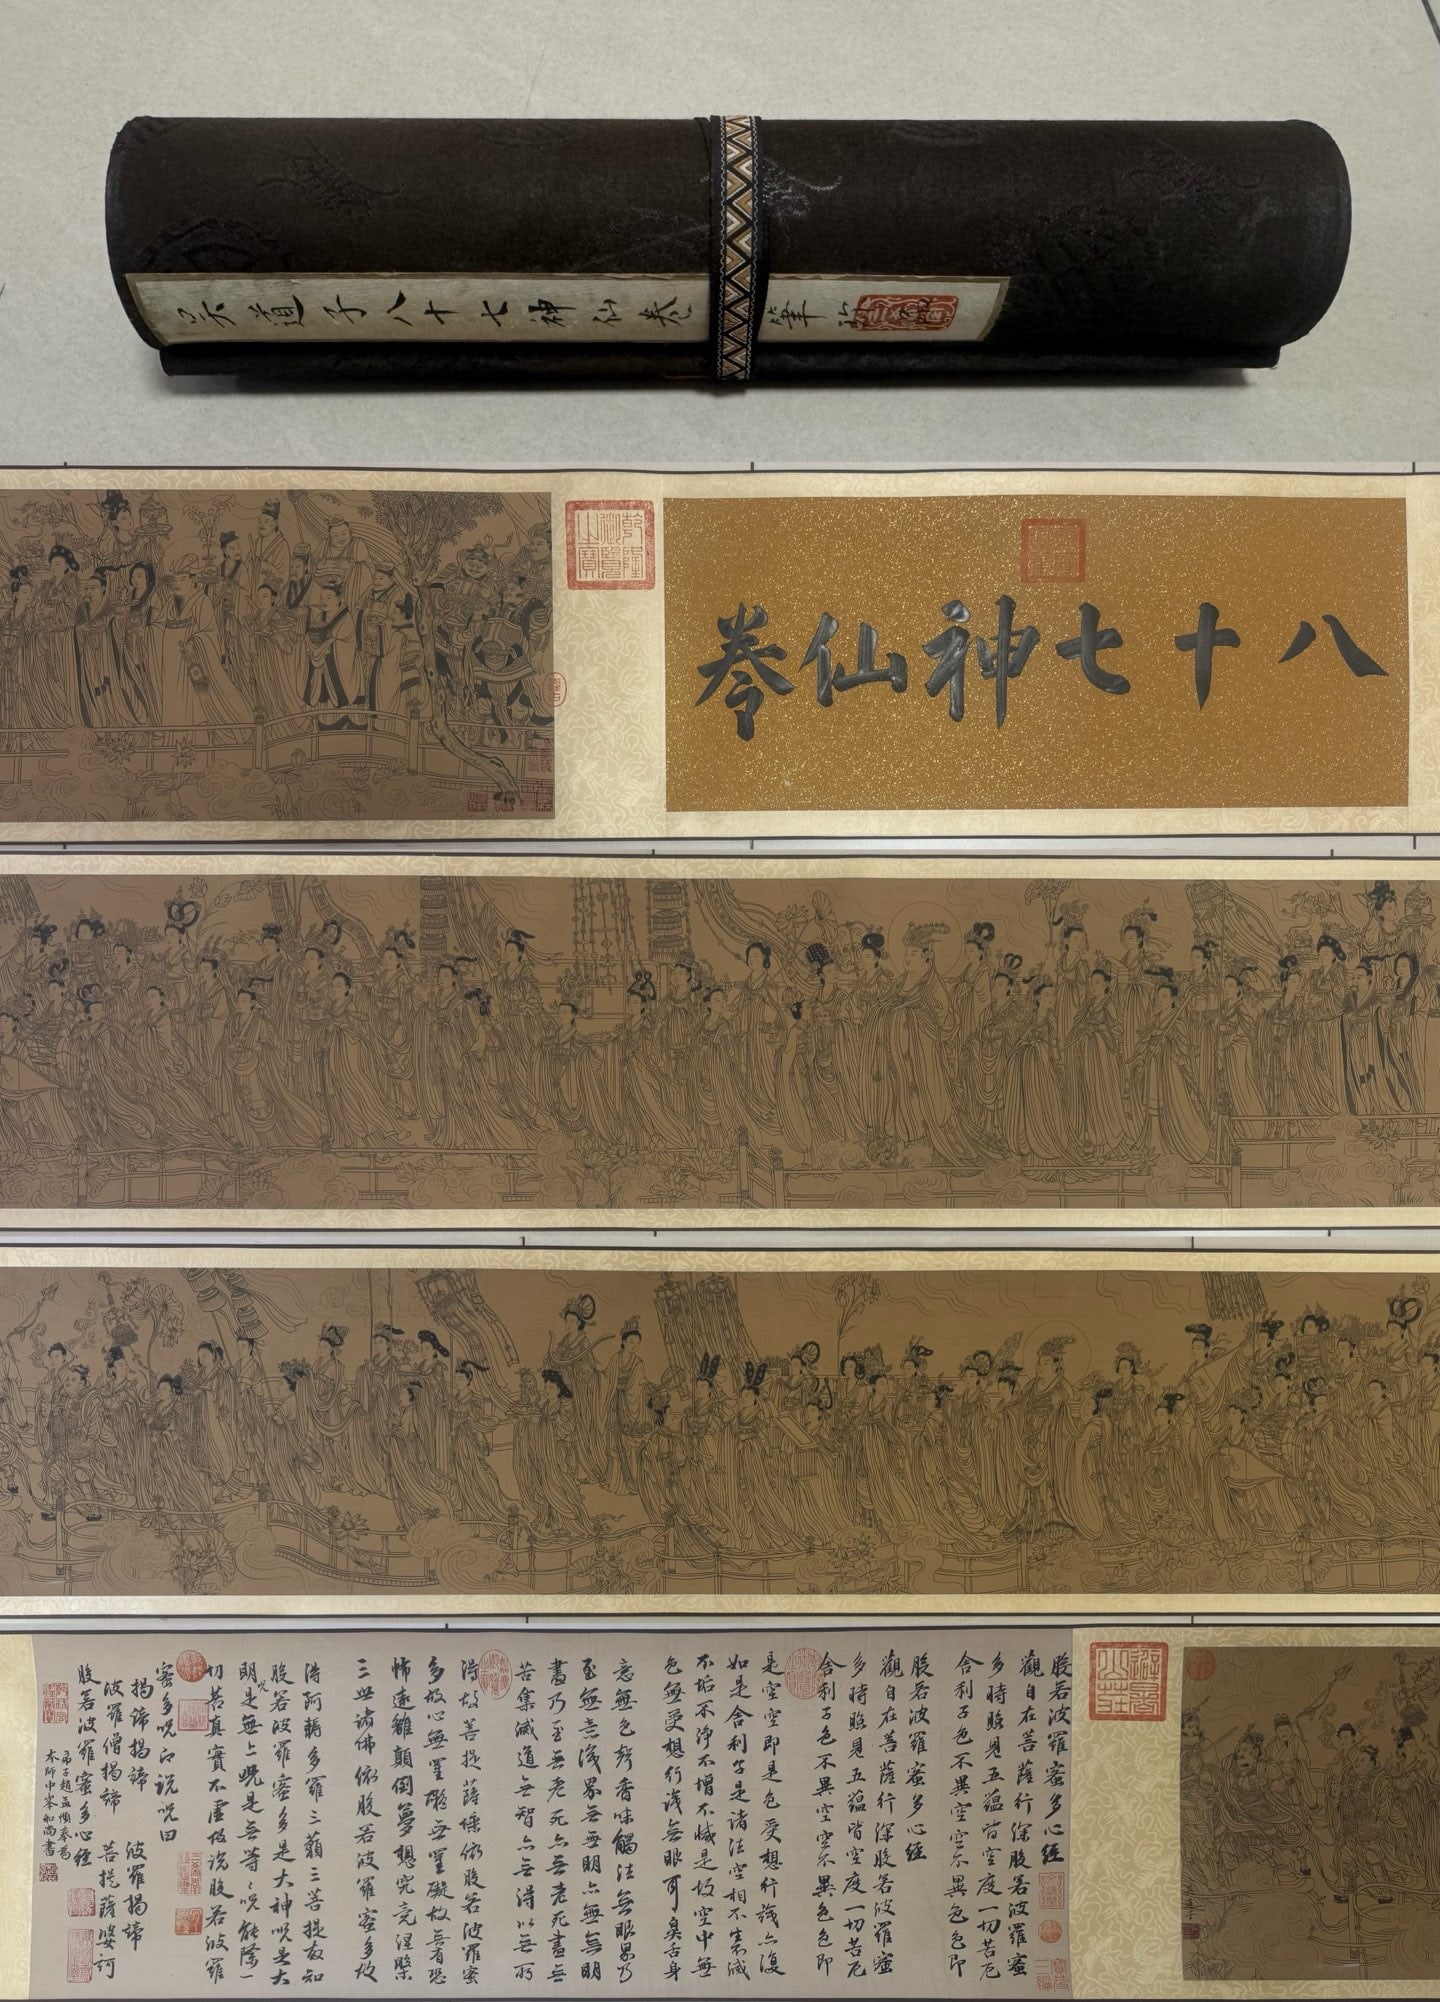 吴道子八十七神仙卷
筆
八十七神仙卷
乾隆御覽之寶
避暑山莊
般若波羅蜜多心經
觀自在菩薩行深般若波羅蜜
多時照見五蕴皆空度一切苦厄
舍利子色不異空空不異色色即
般若波羅蜜多心經
觀自在菩薩行深般若波羅蜜
多時照見五蕴皆空度一切苦厄
舍利子色不異空空不異色色即
是空空即是色受想行識亦復
如是舍利子是諸法空相不生滅
不垢不淨不增不減是故空中無
色無受想行識無眼耳鼻舌身
意無色聲香味觸法無眼界乃
至無意識界無無明亦無無明
盡乃至无老死亦无老死盡無
苦集滅道無智亦無得以無所
得故菩提薩埵依般若波羅蜜
多故心無罣礙無罣礙故無有恐
怖遠離顛倒夢想究竟涅槃
三世諸佛依般若波羅蜜多故
得阿耨多羅三藐三菩提故知
般若波羅蜜多是大神咒是大
明咒是無上咒是無等〻咒能除一
切苦真實不虛故說般若波羅
蜜多咒即說咒曰
揭諦揭諦 波羅揭諦
波羅僧揭諦 菩提薩婆訶
般若波羅蜜多心經
弟子趙孟頫奉為
本師中峯和尚書